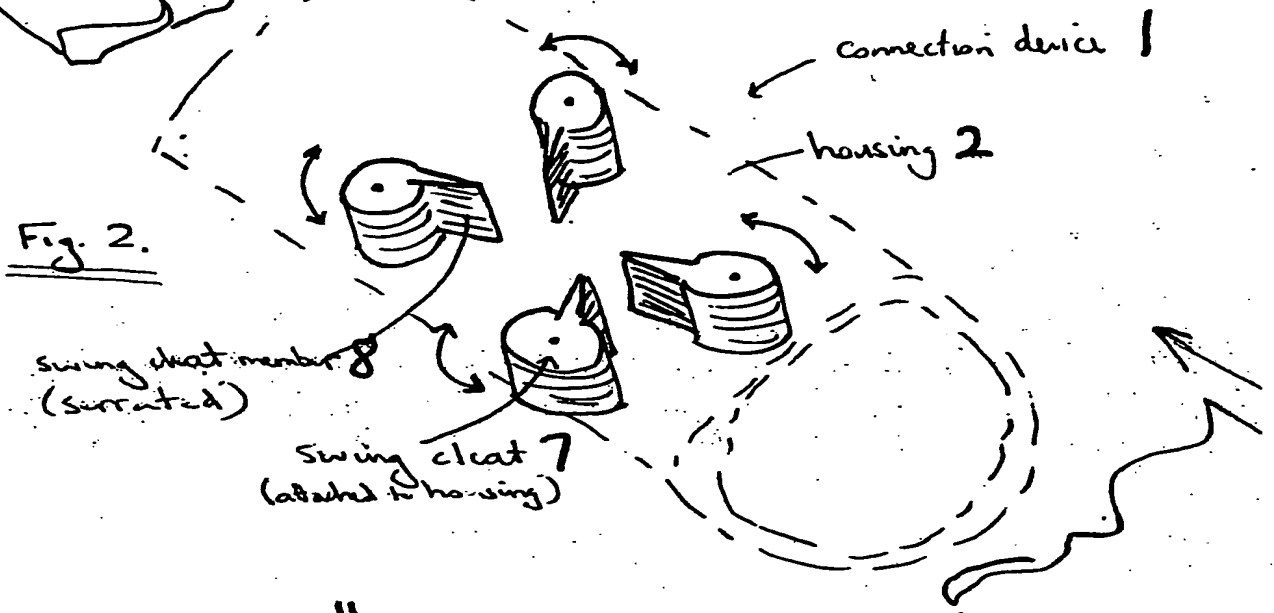 connection device 1
housing 2
Fig. 2.
swing cleat member 8
(serrated)
swing cleat 7
(attached to housing)